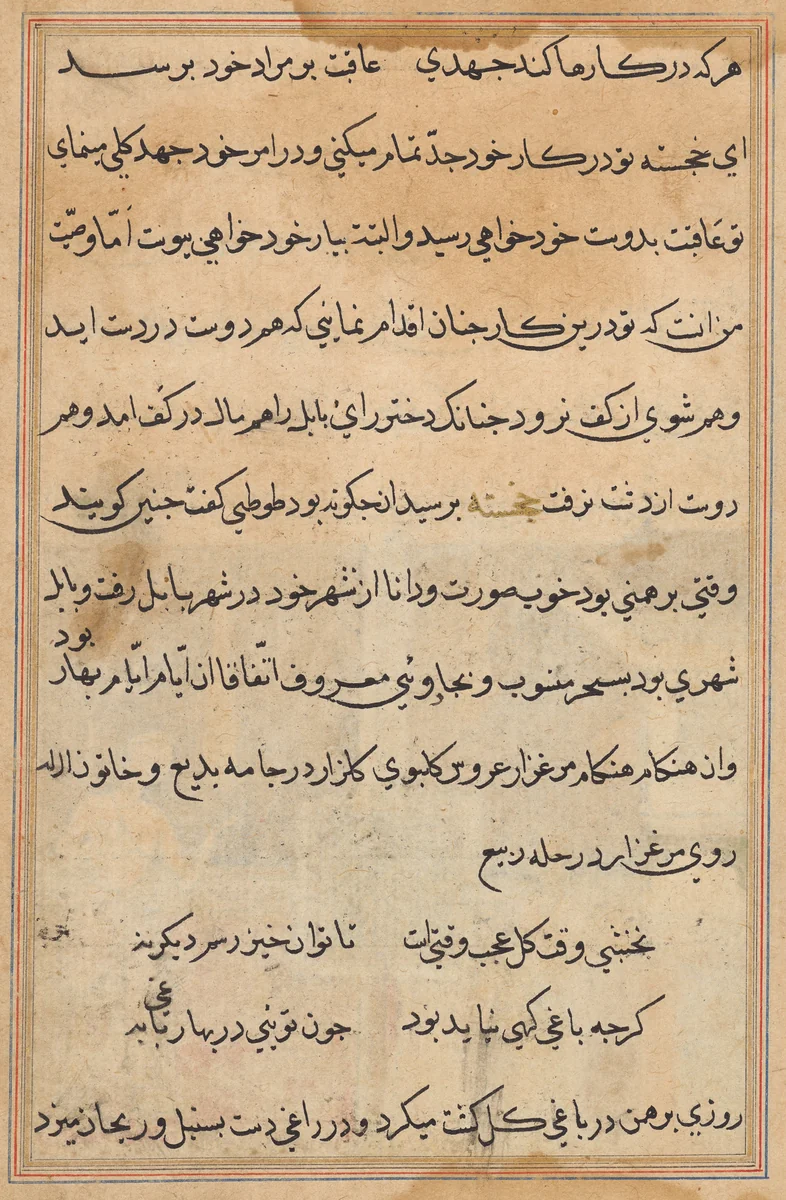 هر که در کارها کند جهدي عاقبت بر مراد خود برسد
اي خجسته تو در کار خود جدّ تمام میکني و در امر خود جهد کلي مینماي
تو عَاقبت بدوست خود خواهي رسید و البته بیار خود خواهي پیوست اَمّا وصیّت
من انست که تو درین کار جنان اقدام نمایني که هم دوست در دست اید
و هم شوي از کف نرود جنانک دختر رايْ بابل را هم مال در کَف امد و هم
دوست از دست نرفت خجسته برسید ان جکونه بود طوطي کفت جنین کویند
وقتي برهمني بود خوب صورت و دانا از شهر خود در شهر بابل رفت و بابل
شهري بود بسحر منسوب و بجادوئي معروف اتّفاقا ان ایّام ایّام بهار بود
و ان هنکام هنکام مرغزار عروس کلبوي کلزار در جامه بدیع و خاتون لاله
روي مرغزار در حله ربیع
نخشبي وقت کل عجب وقتي است تا توان خیز رسم دیکر نه
کرجه باغي کهي نیاید بود جون توئي در بهار باغي به
روزي برهمن در باغي کل کشت میکرد و در راغي دست بسنبل و ریحان میزد